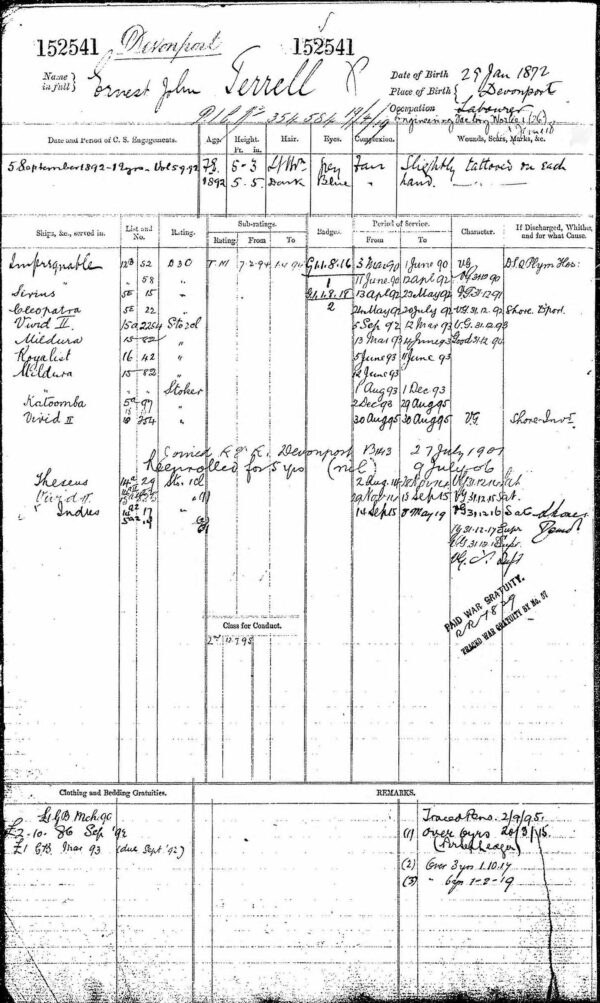 152541 Devonport 152541
Name in full } Ernest John Terrell
Date of Birth 29 Jan 1872
Place of Birth } Devonport
Occupation Labourer
354584 19/4/19
Date and Period of C. S. Engagements. Age. Height. Ft. in. Hair. Eyes. Complexion. Wounds, Scars, Marks, &c.
5 September 1892 - 12 yrs - 5-3 Grey Fair Slightly tattooed on each
1892 5.5. Dark Blue " hand.
Ships, &c., served in. List and No. Rating. Sub-ratings. Rating. From To Badges. Period of Service. From To Character. If Discharged, Whither, and for what Cause.
Impregnable 12B 52 T.M 7.2.94 G.1.1.8.16 3 Mar 90 1 June 90 VG
" 58 " 1 11 June 90 12 Apl 92 VG 31.12.90
Sirius 5E 15 " 2 13 Apl 92 23 May 92 31.12.91
Cleopatra 5E 22 " 24 May 92 20 July 92 VG 31.12.92 Shore.
Vivid II 15a 2254 Sto 2cl 5 Sep 92 12 Mar 93 V.G. 31.12.93
Mildura 15 82 " 13 Mar 93 4 June 93 Good 31.12.94
Royalist 16 42 " 5 June 93 11 June 93
Mildura 15 82 " 12 June 93
" " Stoker 1 Aug 93 1 Dec 93
Katoomba 5a 97 " 2 Dec 93 29 Aug 95
Vivid II 254 " 30 Aug 95 30 Aug 95 VG Shore Invd.
Joined R.F.R. Devonport B1143 27 July 1901
Reenrolled for 5 yrs (nil) 9 July 06
Theseus 14a 29 Sto. 1cl 2 Aug 14 VG 31.12.14 Sat.
Vivid II. " 29 Nov 14 13 Sept 15 VG 31.12.15 Sat.
Indus 17 " 14 Sep 15 8 May 19 VG 31.12.16 Sat. Shore
VG 31.12.17 Supr Demob
VG 31.12.18 Supr
VG Supr
PAID WAR GRATUITY.
TRACED WAR GRATUITY BY No. 37
Class for Conduct.
Clothing and Bedding Gratuities.
GB Mch 90
£2.10. Sep '92
£1 GB Mar 93 (due Sept '92)
REMARKS.
Traced Pens. 2/9/95.
(1) Over 6 yrs 20/3/15.
(2) Over 3 yrs 1.10.17
(3) " 6 yrs 1-2-19